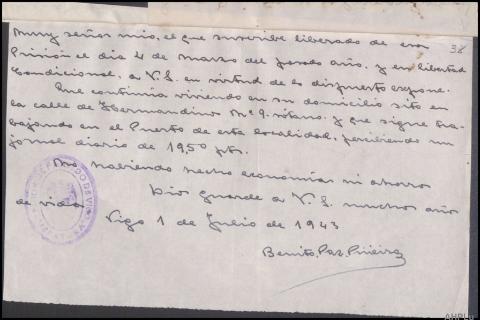 Muy señor mio, el que suscribe liberado de esa
Prisión el dia 4 de marzo del pasado año, y en libertad
Condicional, a V.S. en virtud de lo dispuesto expone.
Que continua viviendo en su domicilio sito en
la calle de Hernandino Nº 9. sotano. y que sigue tra-
bajando en el Puerto de esta localidad, percibiendo un
jornal diario de 19,50 pts.
No habiendo hecho economias ni ahorro
Dios guarde a V.S. muchos años
de vida.
Vigo 1 de Julio de 1943
Benito Paz Piñeiro
38
AHPLu